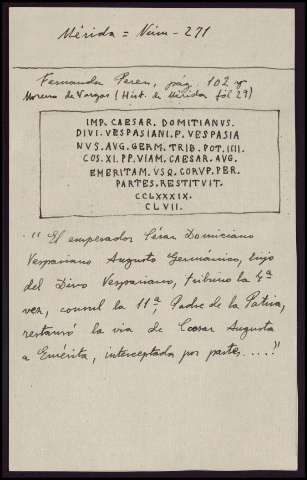 Mérida = Núm - 271
Fernandez Perez, pág. 102 y
Moreno de Vargas (Hist. de Mérida fól 29)
IMP. CAESAR. DOMITIANVS.
DIVI. VESPASIANI. F. VESPASIA
NVS. AVG. GERM. TRIB. POT. IIII.
COS. XI. PP. VIAM. CAESAR. AVG.
EMERITAM. VSQ. CORVP. PER.
PARTES. RESTITVIT.
CCLXXXIX.
CLVII.
" El emperador César Domiciano
Vespasiano Augusto Germánico, hijo
del Divo Vespasiano, tribuno la 4ª
vez, consul la 11ª, Padre de la Patria,
restauró la via de Cesar Augusta
a Emérita, interceptada por partes....."